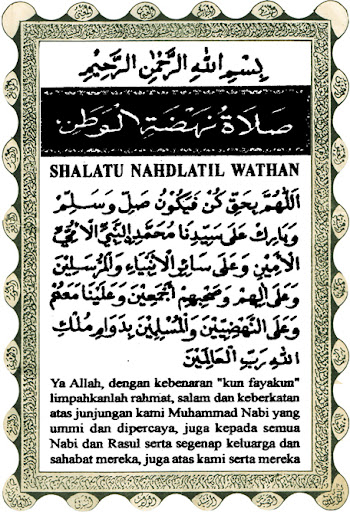 بِسْمِ اللهِ الرَّحْمٰنِ الرَّحِيْمِ
صَلَاةُ نَهْضَةِ الْوَطَنِ
SHALATU NAHDLATIL WATHAN
اَللّٰهُمَّ بِحَقِّ كُنْ فَيَكُوْنُ صَلِّ وَسَلِّمْ
وَبَارِكْ عَلَى سَيِّدِنَا مُحَمَّدٍ النَّبِيِّ الْاُمِّيِّ
الْاَمِيْنِ وَعَلَى سَائِرِ الْاَنْبِيَاءِ وَالْمُرْسَلِيْنَ
وَعَلَى اٰلِهِمْ وَصَحْبِهِمْ اَجْمَعِيْنَ وَعَلَيْنَا مَعَهُمْ
وَعَلَى النَّهْضِيِّيْنَ وَالْمُسْلِمِيْنَ بِدَوَامِ مُلْكِ
اللهِ رَبِّ الْعَالَمِيْنَ
Ya Allah, dengan kebenaran "kun fayakun"
limpahkanlah rahmat, salam dan keberkatan
atas junjungan kami Muhammad Nabi yang
ummi dan dipercaya, juga kepada semua
Nabi dan Rasul serta segenap keluarga dan
sahabat mereka, juga atas kami serta mereka